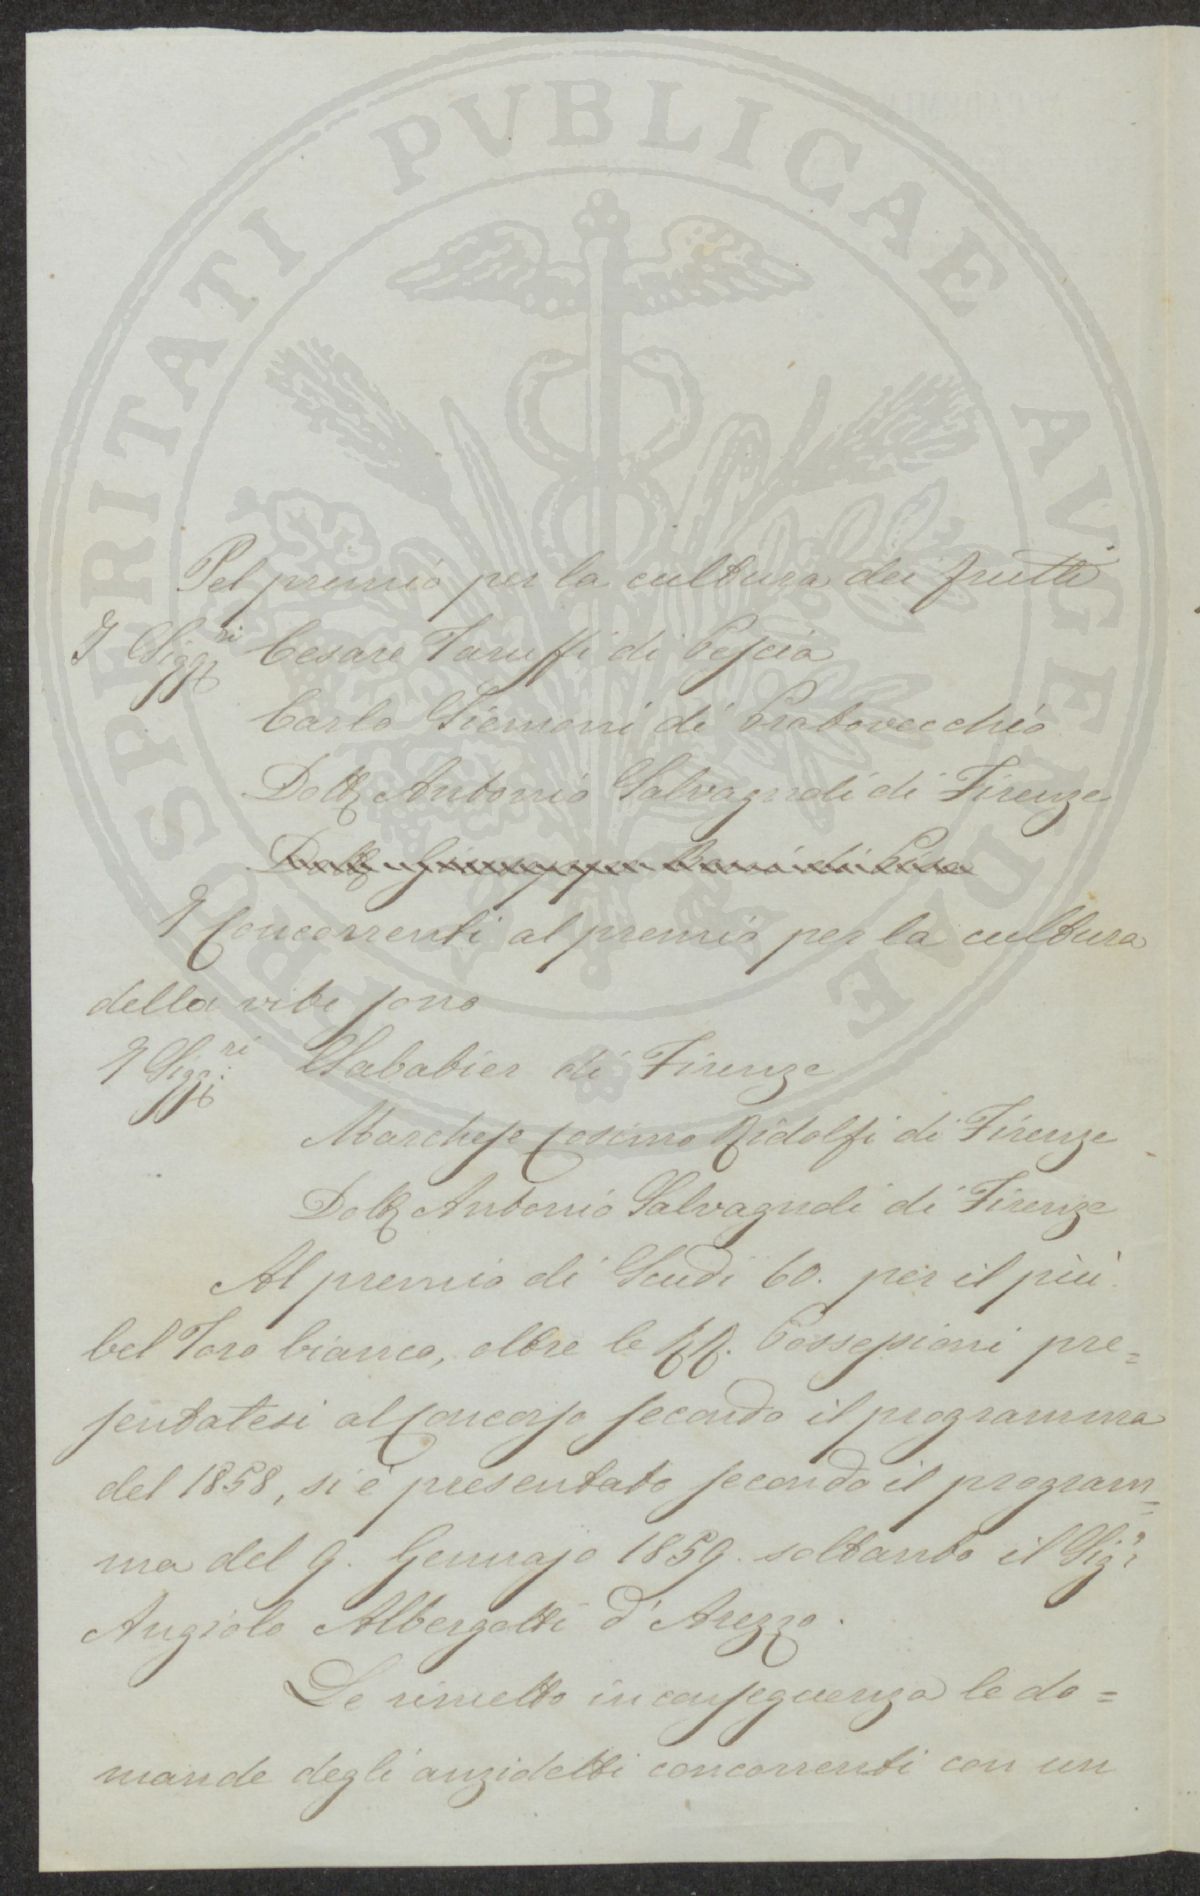 PROSPERITATI PUBLICAE AUGENDAE
Pel premio per la cultura dei frutti
I Sigg.ri Cesare Taruffi di Pescia
Carlo Siemoni di Pratovecchio
Dott. Antonio Salvagnoli di Firenze
Dott. Giuseppe di Pisa
I Concorrenti al premio per la cultura
della vite sono
I Sigg.ri Sabatier di Firenze
Marchese Cosimo Ridolfi di Firenze
Dott. Antonio Salvagnoli di Firenze
Al premio di Scudi 60. per il più
bel Toro bianco, oltre le RR. Possessioni pre=
sentatesi al Concorso secondo il programma
del 1858, si è presentato secondo il program=
ma del 9. Gennajo 1859. soltanto il Sig.r
Angiolo Albergotti d'Arezzo.
Le rimetto in conseguenza le do=
mande degli anzidetti concorrenti con un